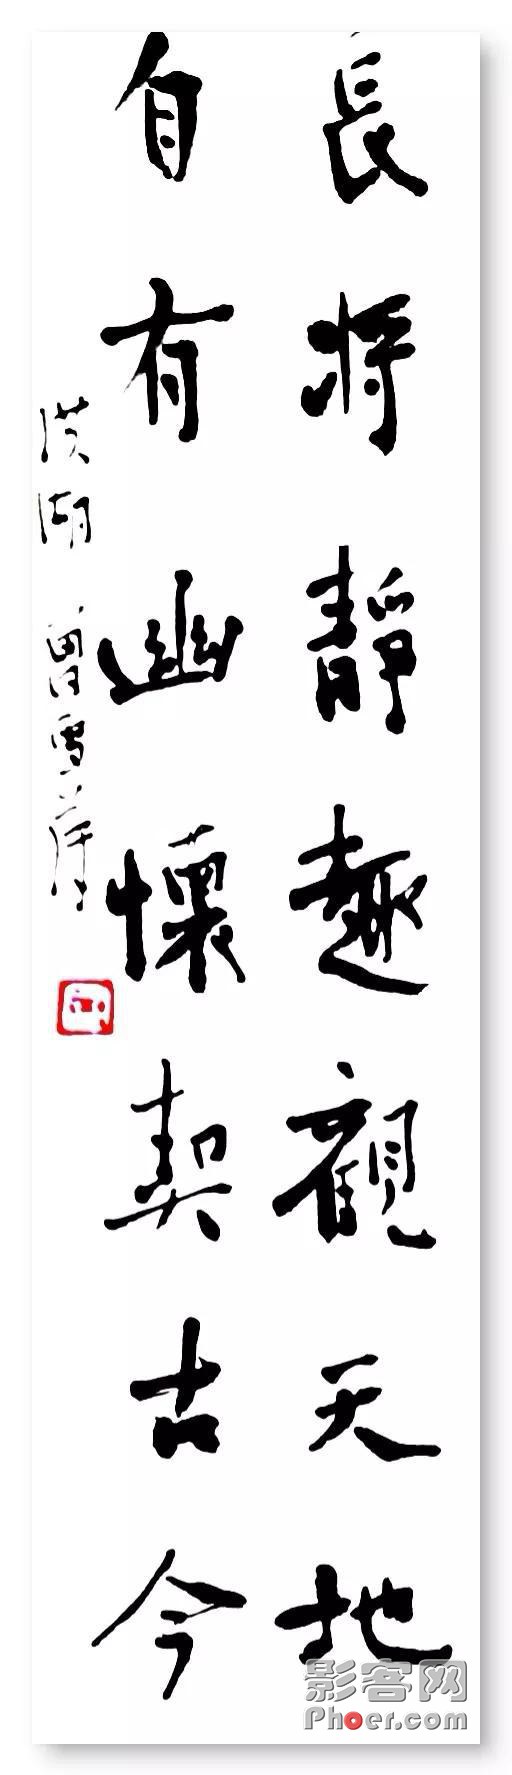 長將靜趣觀天地
自有幽懷契古今
洪湖 曾雪萍
影客网
Phoer.com